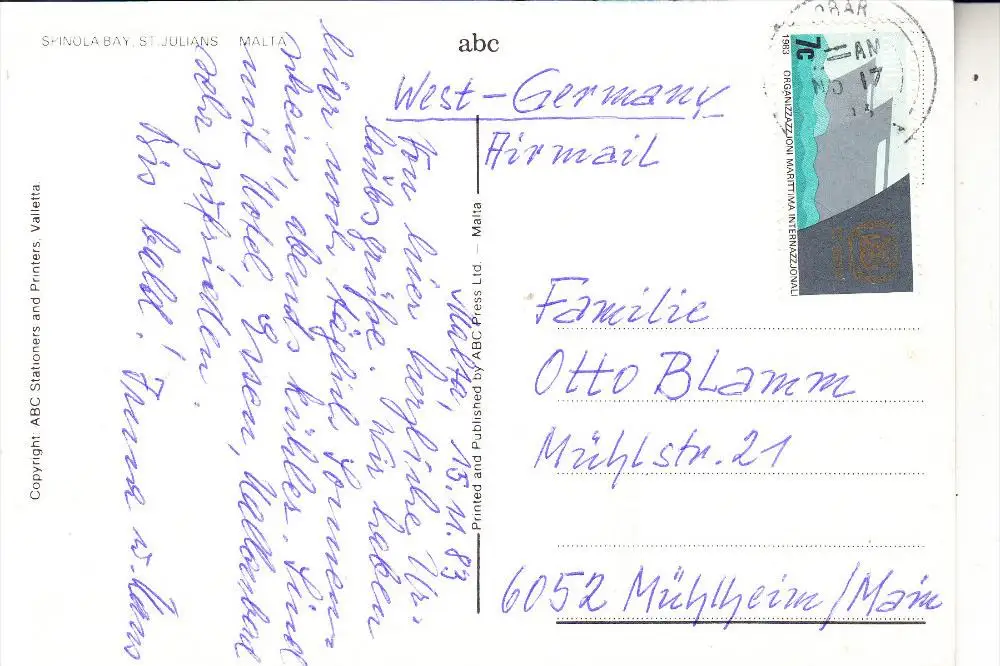 SPINOLA BAY, ST. JULIANS MALTA
abc
Malta, 15.11.83
Von hier herzliche Ur-
laubsgrüße. Wir haben
hier noch täglich Sonnen-
schein, abends kühler. Sind
mit Hotel, Essen, Hallenbad
sehr zufrieden.
Bis bald! u. Hans
Copyright: ABC Stationers and Printers, Valletta.
Printed and Published by ABC Press Ltd. – Malta
West-Germany
Airmail
7c
1983 ORGANIZZAZZJONI MARITTIMA INTERNAZZJONALI
AM
NO 17
Familie
Otto Blamm
Mühlstr. 21
6052 Mühlheim/Main